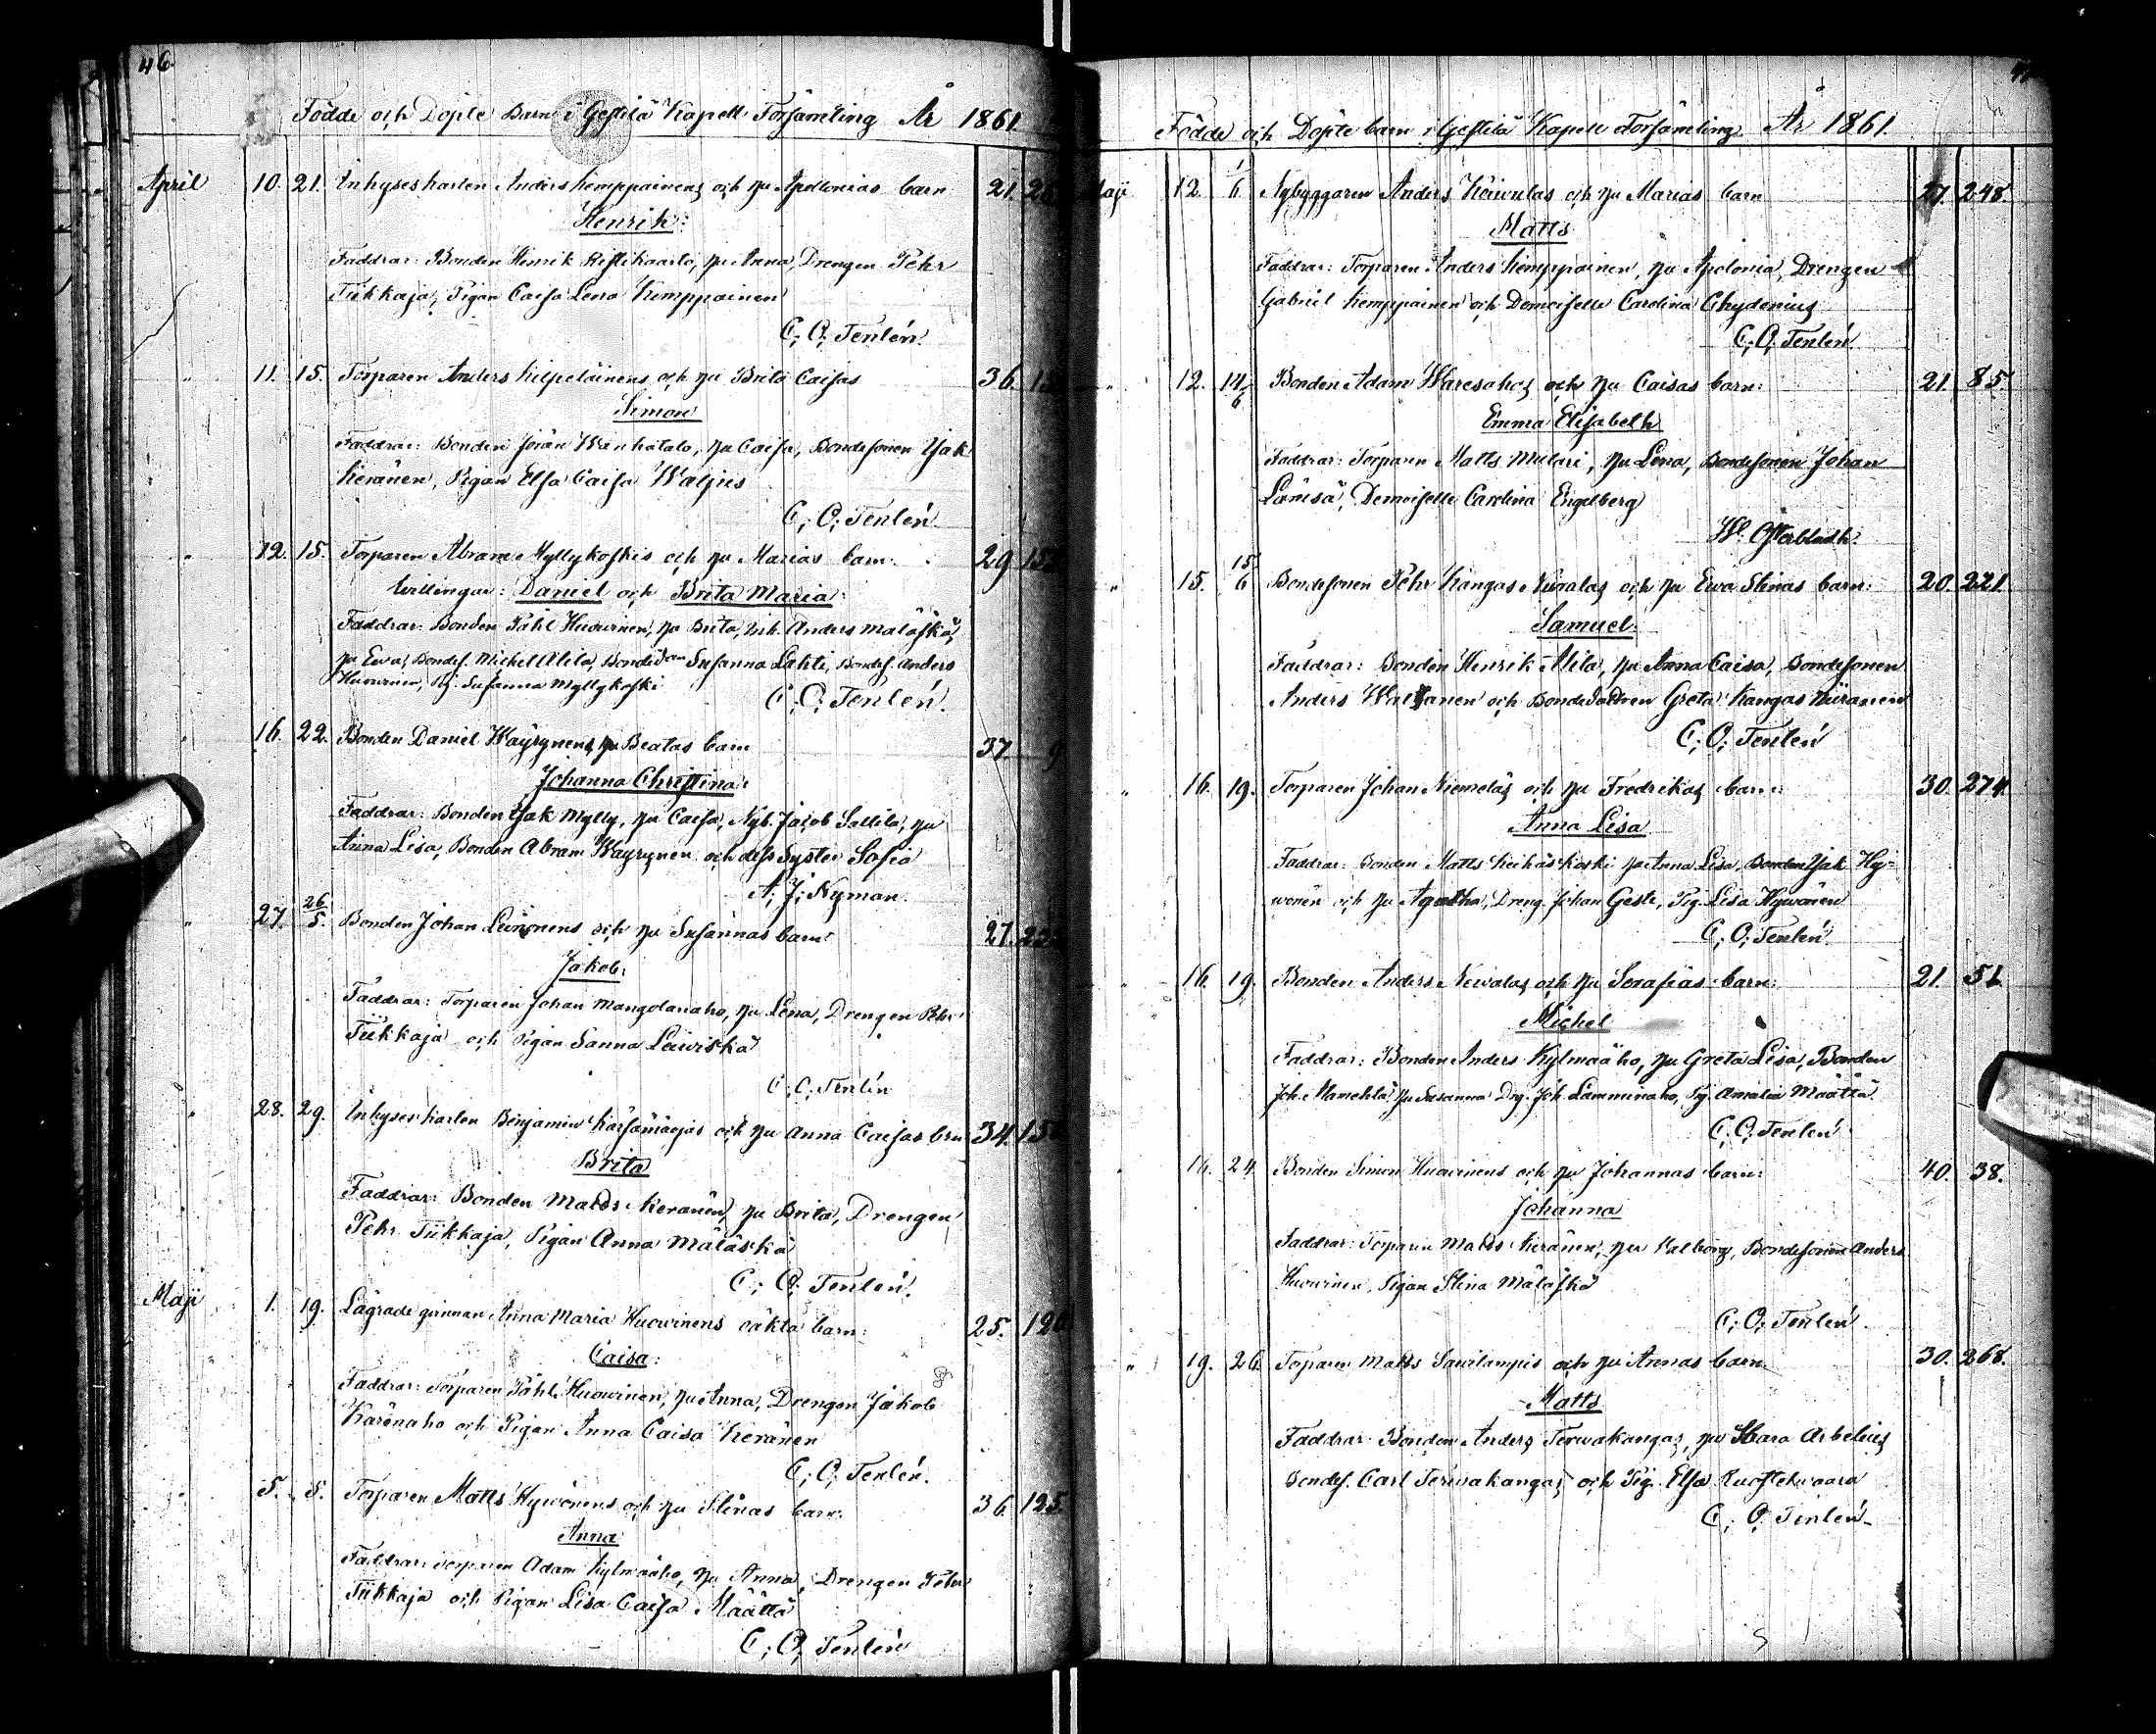 46.
Födde och Döpte Barn i Gestilä Kapell Församling År 1861.
April 10. 21. Inhyseskarlen Anders Kemppainens och hu Apollonias barn 21.
Henrik:
Faddrar: Bonden Henrik Ristikaarto, hu Anna, Drengen Pehr
Tiikkaja, Pigan Caisa Lena Kemppainen
C; O; Tenlén.
" 11. 15. Torparen Anders Kilpeläinens och hu Brita Caisas 36.
Simon
Faddrar: Bonden Jöran Wanhatalo, hu Caisa, Bondesonen Isak
Keränen, Pigan Elsa Caisa Waljus
C; O; Tenlén
" 12. 15. Torparen Abram Myllykoskis och hu Marias barn: 29
twillingar: Daniel och Brita Maria:
Faddrar: Bonden Påhl Huovinen, hu Brita, Inh. Anders Mäläskä,
hu Eva, Bondes. Michel Alila, Bonded:an Susanna Lahti, Bondes. Anders
Huovinen, Pig. Susanna Myllykoski
C; O; Tenlén.
" 16. 22. Bonden Daniel Wäyrynens, hu Beatas barn 37 9
Johanna Christina:
Faddrar: Bonden Isak Mylly, hu Caisa, Nyb. Jacob Sallila, hu
Anna Lisa, Bonden Abram Wäyrynen och dess Syster Sofia
A; J; Nyman.
" 27. 26/5. Bonden Johan Leinonens och hu Susannas barn: 27.
Jakob:
Faddrar: Torparen Johan Mangolanaho, hu Lena, Drengen Pehr
Tiikkaja och Pigan Sanna Leiviskä
C; O; Tenlén
" 28. 29. Inhyseskarlen Benjamin Kärsämäejäs och hu Anna Caisas brn 34.
Brita
Faddrar: Bonden Matts Keränen, hu Brita, Drengen
Pehr Tiikkaja, Pigan Anna Mäläskä
C; O; Tenlén.
Maji 1. 19. Lägrade qvinnan Anna Maria Huovinens oäkta barn: 25. 120
Caisa:
Faddrar: Torparen Påhl Huovinen, hu Anna, Drengen Jakob
Karsnaho och Pigan Anna Caisa Keränen
C; O; Tenlén.
5. 5. Torparen Matts Hyvönens och hu Stinas barn: 36. 125.
Anna
Faddrar: Torparen Adam Kylmäaho, hu Anna, Drengen Pehr
Tiikkaja och Pigan Lisa Caisa Määttä
C; O; Tenlén
Födde och Döpte barn i Gestilä Kapell Församling År 1861.
Maji 12. 1/6 Nybyggaren Anders Koivulas och hu Marias barn 27. 248.
Matts
Faddrar: Torparen Anders Kemppainen, hu Apolonia, Drengen
Gabriel Kemppainen och Demoiselle Carolina Chydenius
C; O; Tenlén
" 12. 14/6 Bonden Adam Waresahos och hu Caisas barn: 21. 85.
Emma Elisabeth
Faddrar: Torparen Matts Mulari, hu Lena, Bondesonen Johan
Lämsä, Demoiselle Carolina Engelberg
W. Österbladh.
" 15. 15/6 Bondesonen Pehr Kangas Nivalas och hu Eva Stinas barn: 20. 221
Samuel.
Faddrar: Bonden Henrik Alila, hu Anna Caisa, Bondesonen
Anders Waltanen och Bondedottren Greta Kangas Kiiranen
C; O; Tenlén
" 16. 19. Torparen Johan Niemeläs och hu Fredrikas barn: 30. 274.
Anna Lisa
Faddrar: Bonden Matts Keihäskoski hu Anna Lisa, Bonden Isak Hy-
vönen och hu Agatha, Dreng. Johan Geste, Pig. Lisa Hyvönen
C; O; Tenlén.
16. 19. Bonden Anders Nevalas och hu Serafias barn: 21. 51.
Michel
Faddrar: Bonden Anders Kylmäaho, hu Greta Lisa, Bonden
Joh. Mamehlä hu Susanna Drg. Joh. Lamminaho, Pig. Amalia Määttä
C; O; Tenlén
16. 24. Bonden Simon Huovinens och hu Johannas barn: 40. 38.
Johanna
Faddrar: Torparen Matts Keränen, hu Valborg, Bondesonen Anders
Huovinen, Pigan Stina Mäläskä
C; O; Tenlén
" 19. 26. Torparen Matts Savilampis och hu Annas barn. 30. 268.
Matts
Faddrar: Bonden Anders Tervakangas, hu Sara Arbelius
Bondes. Carl Tervakangas och Pig. Elsa Ruostewaara
C; O; Tenlén